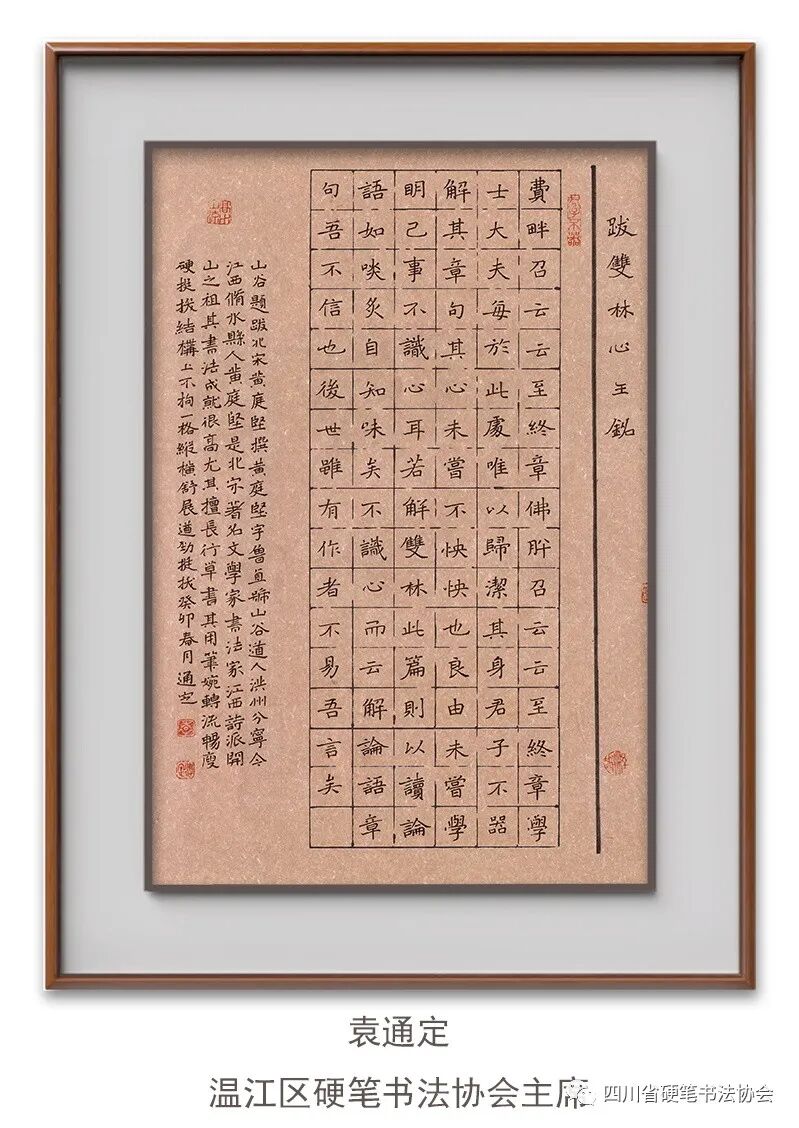 跋雙林心王銘
費畔召云云至終章佛肸召云云至終章學
士大夫每於此處唯以歸潔其身君子不器
解其章句其心未嘗不怏怏也良由未嘗學
明己事不識心耳若解雙林此篇則以讀論
語如啖炙自知味矣不識心而云解論語章
句吾不信也後世雖有作者不易吾言矣
山谷題跋北宋黄庭堅撰黄庭堅字魯直號山谷道人洪州分寧今
江西脩水縣人黄庭堅是北宋著名文學家書法家江西詩派開
山之祖其書法成就很高尤其擅長行草書其用筆婉轉流暢瘦
硬挺拔結構上不拘一格縱橫舒展遒勁挺拔癸卯春月通定
袁通定
温江区硬笔书法协会主席
四川省硬笔书法协会